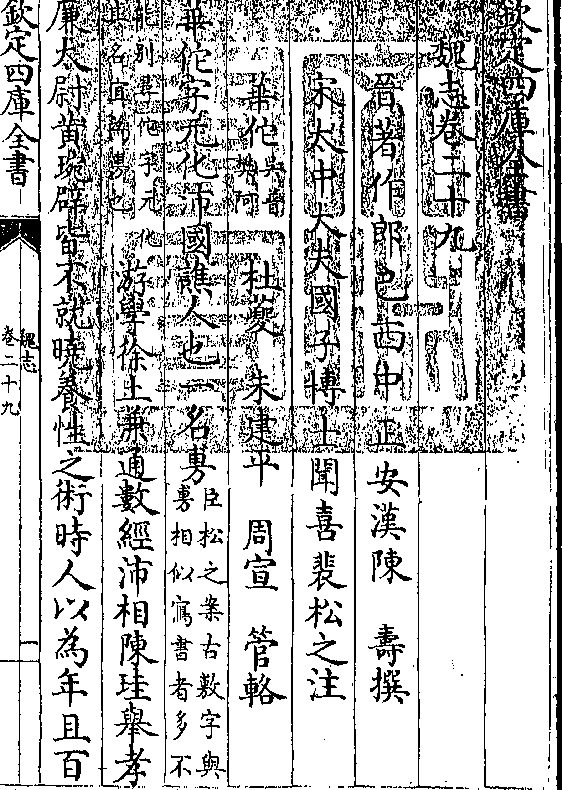 欽定四庫全書
魏志卷二十九
晉著作郎巴西中正安漢陳 壽撰
宋太中大夫國子博士聞喜裴松之注
華佗吳普樊阿 杜夔 朱建平 周宣 管輅
華佗字元化沛國譙人也一名旉臣松之案古敷字與旉相似寫書者多不
能別尋佗字元化其名宜為旉也游學徐土兼通數經沛相陳珪舉孝
廉太尉黃琬辟皆不就曉養性之術時人以為年且百
欽定四庫全書
魏志
卷二十九
一